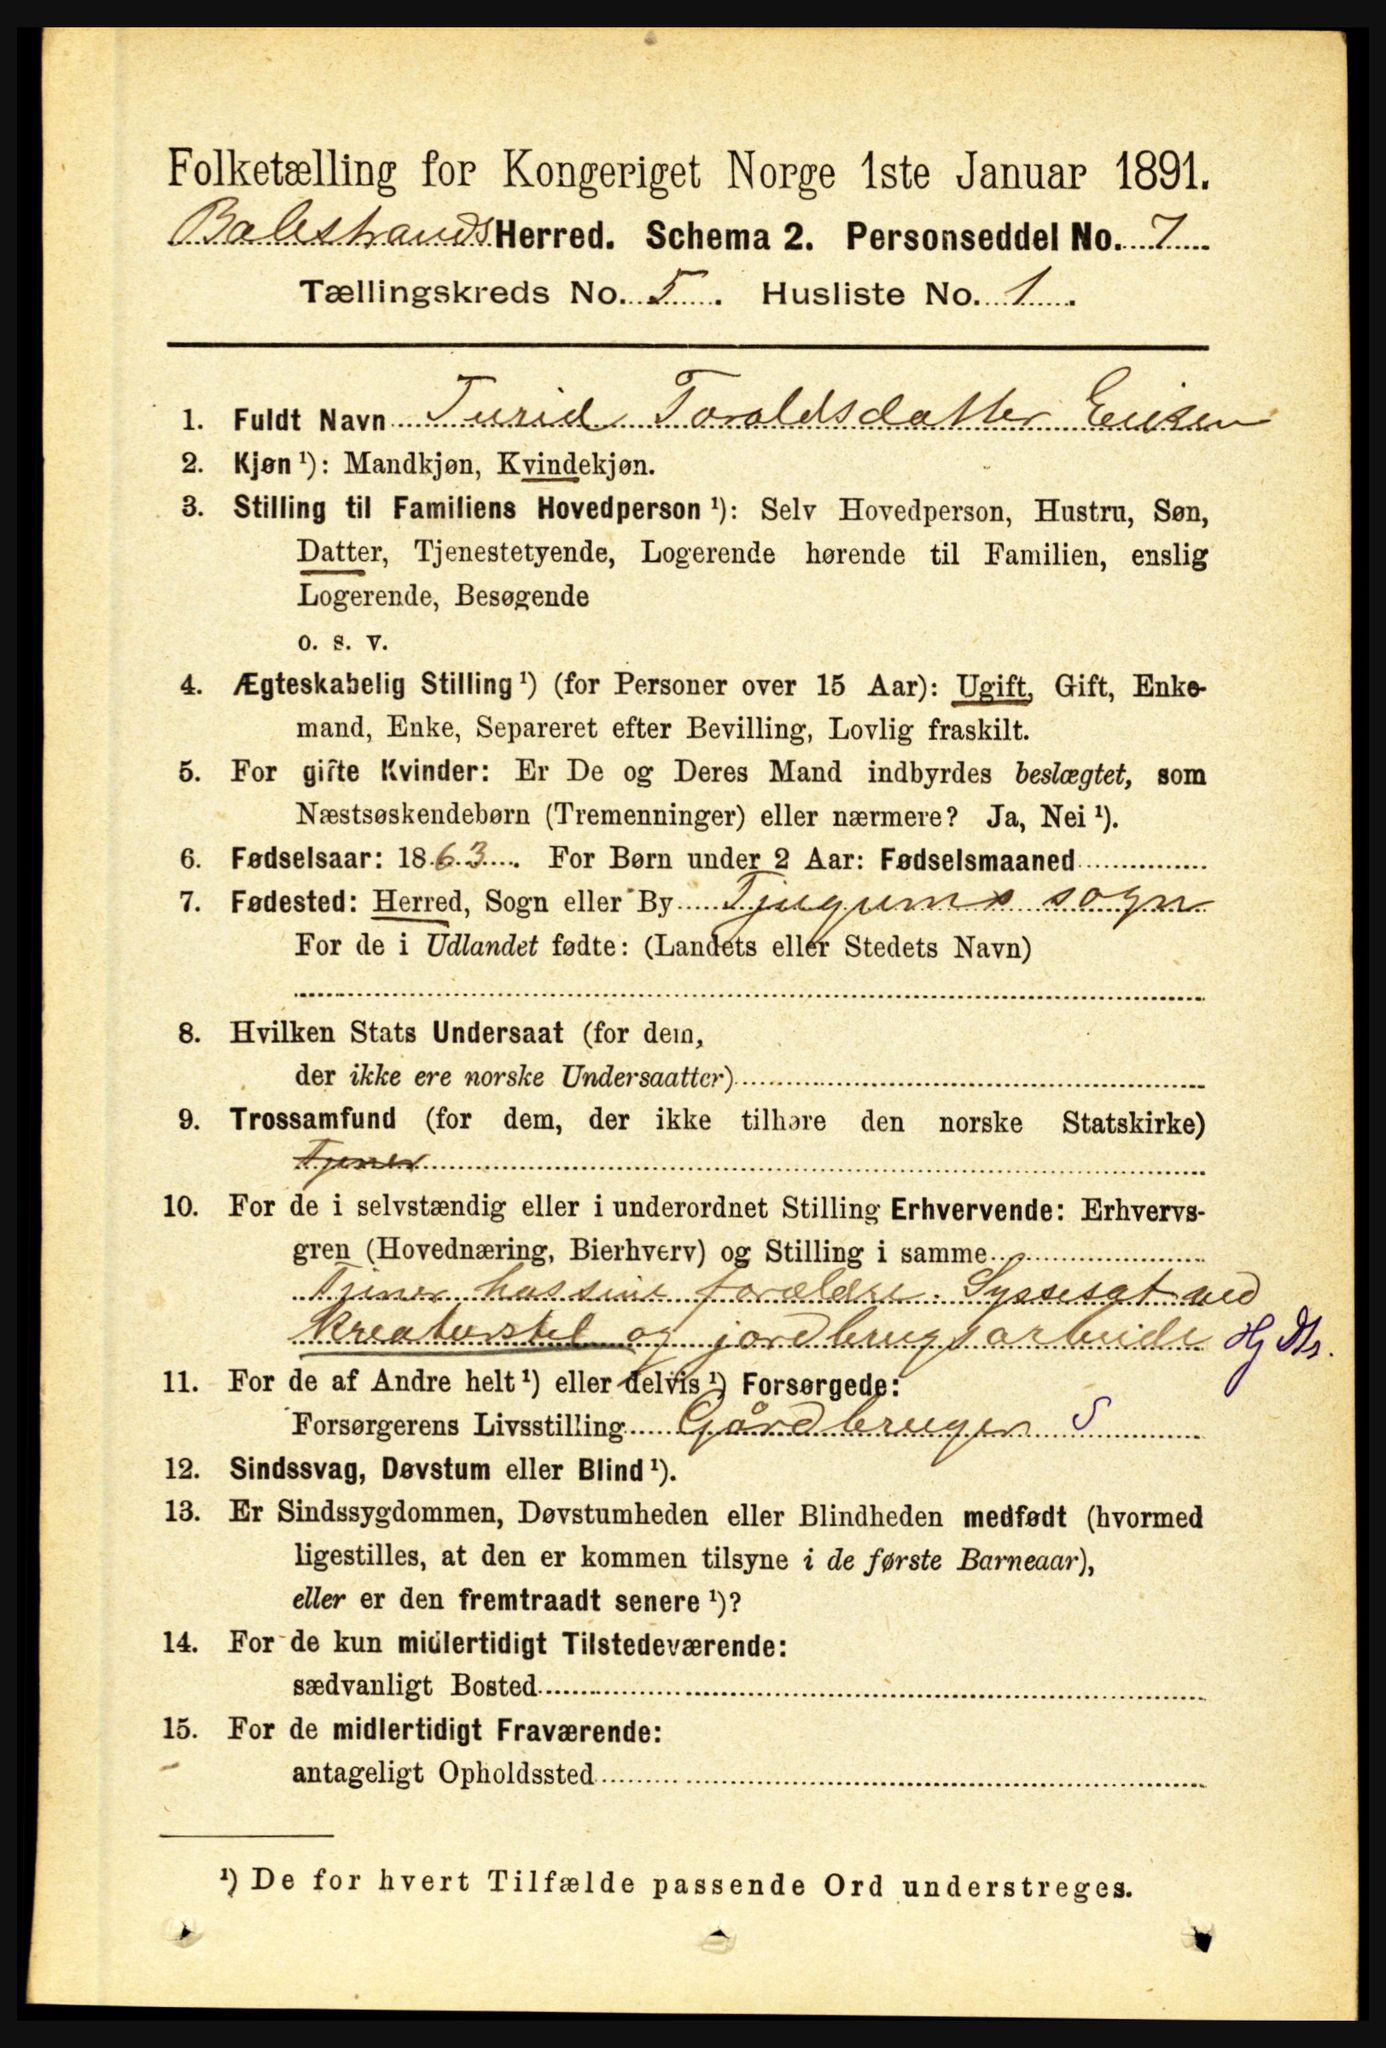 Folketælling for Kongeriget Norge 1ste Januar 1891.
Balestrands Herred. Schema 2. Personseddel No. 7
Tællingskreds No. 5. Husliste No. 1.
1. Fuldt Navn Turid Toraldsdatter
2. Kjøn ¹): Mandkjøn, Kvindekjøn.
3. Stilling til Familiens Hovedperson ¹): Selv Hovedperson, Hustru, Søn,
Datter, Tjenestetyende, Logerende hørende til Familien, enslig
Logerende, Besøgende
o. s. v.
4. Ægteskabelig Stilling ¹) (for Personer over 15 Aar): Ugift, Gift, Enke-
mand, Enke, Separeret efter Bevilling, Lovlig fraskilt.
5. For gifte Kvinder: Er De og Deres Mand indbyrdes beslægtet, som
Næstsøskendebørn (Tremenninger) eller nærmere? Ja, Nei ¹).
6. Fødselsaar: 1863. For Børn under 2 Aar: Fødselsmaaned
7. Fødested: Herred, Sogn eller By Tjugums sogn
For de i Udlandet fødte: (Landets eller Stedets Navn)
8. Hvilken Stats Undersaat (for dem,
der ikke ere norske Undersaatter)
9. Trossamfund (for dem, der ikke tilhøre den norske Statskirke)
Tjener
10. For de i selvstændig eller i underordnet Stilling Erhvervende: Erhvervs-
gren (Hovednæring, Bierhverv) og Stilling i samme
Tjener hos sine forældre. Syssesat ved
Kreaturstel og jordbrugsarbeide Hj Dtr.
11. For de af Andre helt ¹) eller delvis ¹) Forsørgede:
Forsørgerens Livsstilling Gårdbruger S
12. Sindssvag, Døvstum eller Blind ¹).
13. Er Sindssygdommen, Døvstumheden eller Blindheden medfødt (hvormed
ligestilles, at den er kommen tilsyne i de første Barneaar),
eller er den fremtraadt senere ¹)?
14. For de kun midlertidigt Tilstedeværende:
sædvanligt Bosted
15. For de midlertidigt Fraværende:
antageligt Opholdssted
¹) De for hvert Tilfælde passende Ord understreges.